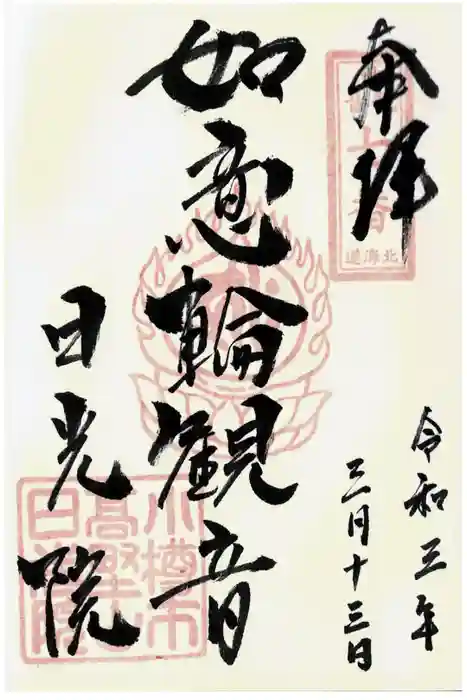 奉拝
北海道
令和三年
三月十三日
如意輪観音
日光院
小樽市
高野山
日光院